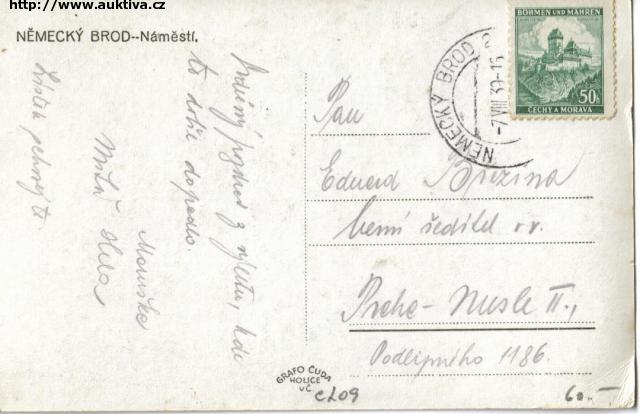 http://www.auktiva.cz
NĚMECKÝ BROD--Náměstí.
Srdečný pozdrav z výletu, kde
to dobře dopadlo.
Maruška
BÖHMEN UND MÄHREN
50h
ČECHY A MORAVA
NĚMECKÝ BROD 2
-7.VIII.39-15
Pan
Eduard Březina
berní ředitel v.v.
Praha-Nusle II.,
Podlipného 1186.
GRAFO ČUDA
HOLICE
v Č.
CL09
60.-